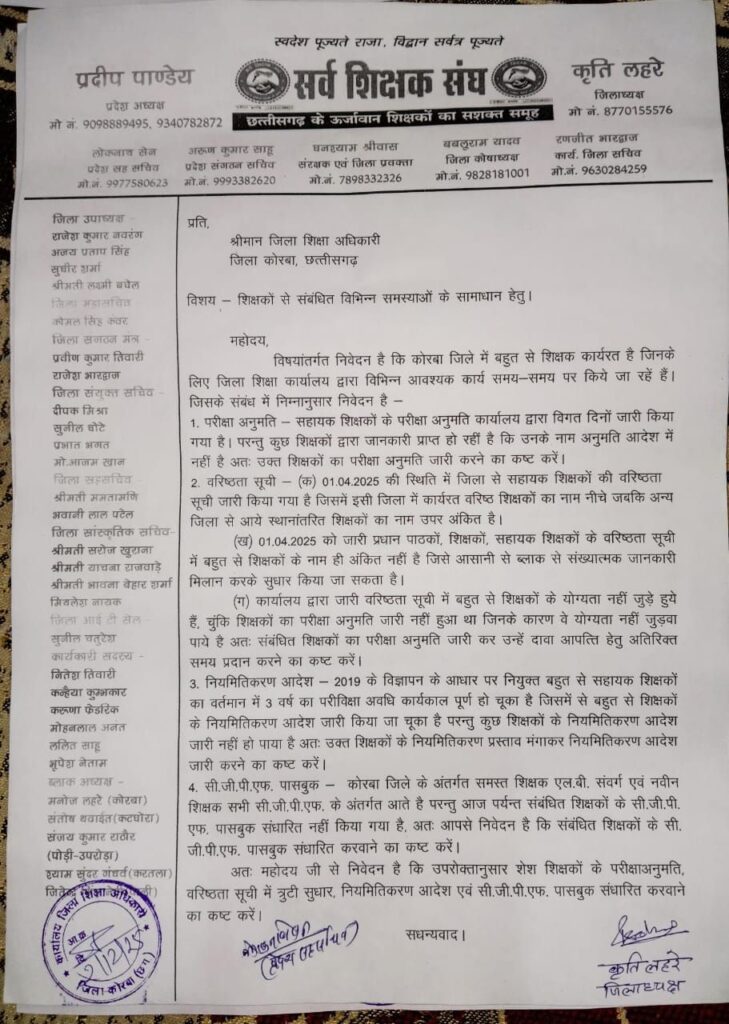 स्वदेश पूज्यते राजा, विद्वान सर्वत्र पूज्यते
प्रदीप पाण्डेय
प्रदेश अध्यक्ष
मो नं. 9098889495, 9340782872
सर्व शिक्षक संघ
छत्तीसगढ़ के ऊर्जावान शिक्षकों का सशक्त समूह
कृति लहरे
जिलाध्यक्ष
मो नं. 8770155576
लोकनाथ सेन
प्रदेश सह सचिव
मो.नं. 9977580623
अरुण कुमार साहू
प्रदेश संगठन सचिव
मो.नं. 9993382620
घनश्याम श्रीवास
संरक्षक एवं जिला प्रवक्ता
मो.नं. 7898332326
बबलूराम यादव
जिला कोषाध्यक्ष
मो.नं. 9828181001
रणजीत भारद्वाज
कार्य. जिला सचिव
मो.नं. 9630284259
जिला उपाध्यक्ष -
राजेश कुमार नवरंग
अजय प्रताप सिंह
सुधीर शर्मा
श्रीमती लक्ष्मी बघेल
जिला महासचिव
कोमल सिंह कंवर
जिला संगठन मंत्र -
प्रवीण कुमार तिवारी
राजेश भारद्वाज
जिला संयुक्त सचिव -
दीपक मिश्रा
सुनील घोटे
प्रभात भगत
मो.आजम खान
जिला सहसचिव
श्रीमती ममतामणि
भवानी लाल पटेल
जिला सांस्कृतिक सचिव-
श्रीमती सरोज खुराना
श्रीमती याचना राजवाड़े
श्रीमती भावना बेहार शर्मा
मिथलेश नायक
जिला आई टी सेल -
सुनील चतुरेश
कार्यकारी सदस्य -
नितेश तिवारी
कन्हैया कुम्भकार
करूणा फेडरिक
मोहनलाल अनंत
ललित साहू
भूपेश नेताम
ब्लाक अध्यक्ष -
मनोज लहरे (कोरबा)
संतोष थवाईत(कटघोरा)
संजय कुमार राठौर
(पोड़ी-उपरोड़ा)
श्याम सुंदर गंधर्व(करतला)
प्रति,
श्रीमान जिला शिक्षा अधिकारी
जिला कोरबा, छत्तीसगढ़
विशय – शिक्षकों से संबंधित विभिन्न समस्याओं के सामाधान हेतु।
महोदय,
विषयांतर्गत निवेदन है कि कोरबा जिले में बहुत से शिक्षक कार्यरत है जिनके
लिए जिला शिक्षा कार्यालय द्वारा विभिन्न आवश्यक कार्य समय–समय पर किये जा रहें हैं।
जिसके संबंध में निम्नानुसार निवेदन है –
1. परीक्षा अनुमति – सहायक शिक्षकों के परीक्षा अनुमति कार्यालय द्वारा विगत दिनों जारी किया
गया है। परन्तु कुछ शिक्षकों द्वारा जानकारी प्राप्त हो रहीं है कि उनके नाम अनुमति आदेश में
नहीं है अतः उक्त शिक्षकों का परीक्षा अनुमति जारी करने का कष्ट करें।
2. वरिष्ठता सूची – (क) 01.04.2025 की स्थिति में जिला से सहायक शिक्षकों की वरिष्ठता
सूची जारी किया गया है जिसमें इसी जिला में कार्यरत वरिष्ठ शिक्षकों का नाम नीचे जबकि अन्य
जिला से आये स्थानांतरित शिक्षकों का नाम उपर अंकित है।
(ख) 01.04.2025 को जारी प्रधान पाठकों, शिक्षकों, सहायक शिक्षकों के वरिष्ठता सूची
में बहुत से शिक्षकों के नाम ही अंकित नहीं है जिसे आसानी से ब्लाक से संख्यात्मक जानकारी
मिलान करके सुधार किया जा सकता है।
(ग) कार्यालय द्वारा जारी वरिष्ठता सूची में बहुत से शिक्षकों के योग्यता नहीं जुड़े हुये
हैं, चुंकि शिक्षकों का परीक्षा अनुमति जारी नहीं हुआ था जिनके कारण वे योग्यता नहीं जुड़वा
पाये है अतः संबंधित शिक्षकों का परीक्षा अनुमति जारी कर उन्हें दावा आपत्ति हेतु अतिरिक्त
समय प्रदान करने का कष्ट करें।
3. नियमितिकरण आदेश – 2019 के विज्ञापन के आधार पर नियुक्त बहुत से सहायक शिक्षकों
का वर्तमान में 3 वर्ष का परीविक्षा अवधि कार्यकाल पूर्ण हो चूका है जिसमें से बहुत से शिक्षकों
के नियमितिकरण आदेश जारी किया जा चूका है परन्तु कुछ शिक्षकों के नियमितिकरण आदेश
जारी नहीं हो पाया है अतः उक्त शिक्षकों के नियमितिकरण प्रस्ताव मंगाकर नियमितिकरण आदेश
जारी करने का कष्ट करें।
4. सी.जी.पी.एफ. पासबुक – कोरबा जिले के अंतर्गत समस्त शिक्षक एल.बी. संवर्ग एवं नवीन
शिक्षक सभी सी.जी.पी.एफ. के अंतर्गत आते है परन्तु आज पर्यन्त संबंधित शिक्षकों के सी.जी.पी.
एफ. पासबुक संधारित नहीं किया गया है, अतः आपसे निवेदन है कि संबंधित शिक्षकों के सी.
जी.पी.एफ. पासबुक संधारित करवाने का कष्ट करें।
अतः महोदय जी से निवेदन है कि उपरोक्तानुसार शेश शिक्षकों के परीक्षाअनुमति,
वरिष्ठता सूची में त्रुटी सुधार, नियमितिकरण आदेश एवं सी.जी.पी.एफ. पासबुक संधारित करवाने
का कष्ट करें।
सधन्यवाद।
कृति लहरे
जिलाध्यक्ष
कार्यालय जिला शिक्षा अधिकारी
जिला-कोरबा (छ.ग.)